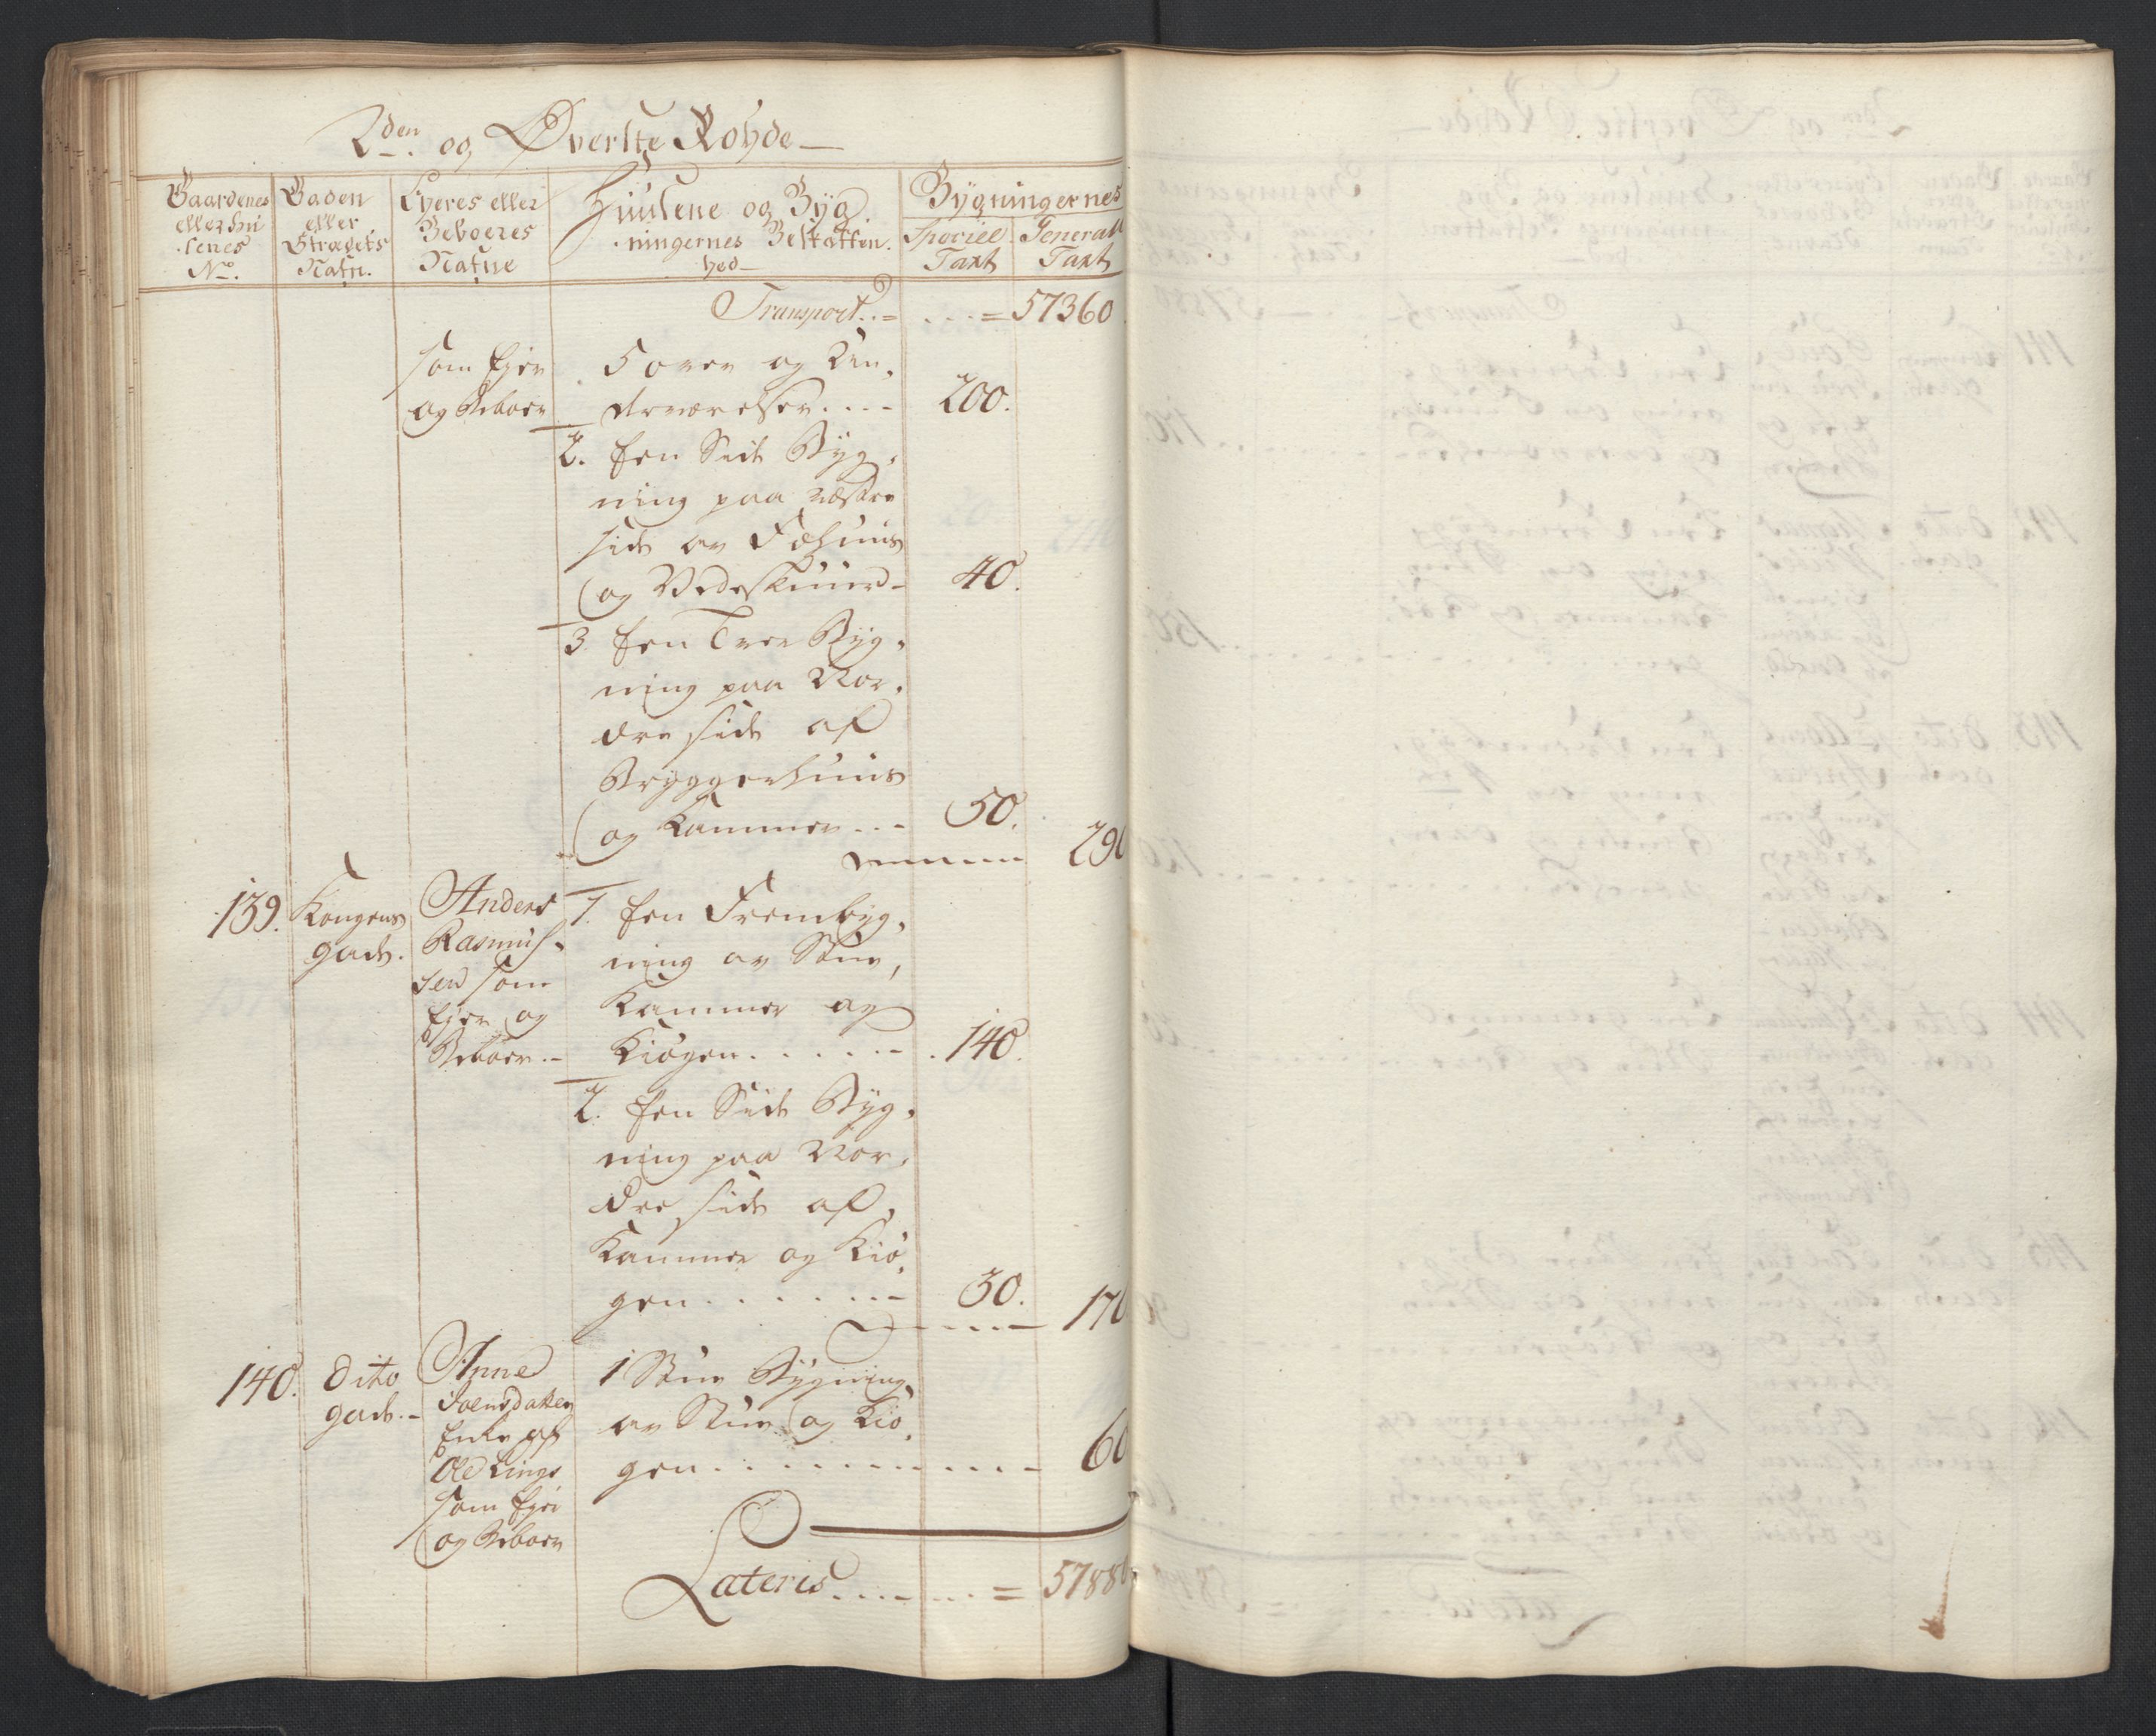 2den og Øverste Rohde
Gaardenes eller Hu
senes
No.
Gaden
eller
Strædets
Nafn.
Eyeres eller
Beboeres
Nafne
Huusene og Byg
ningernes Beskaffen
hed
Bygningernes
Speciel Taxt
General Taxt
Transport = 57360
som Ejer
og Beboer
5 over og Un
derværelser 200.
2. Een Side Byg
ning paa væstre
side av Fæhuus
og Vedeskuur 40.
3. Een Tver Byg
ning paa Nor
dre side af
Bryggerhuus
og Kammer 50.
290
139. Kongens
gade.
Anders
Rasmus
sen som
Ejer og
Beboer.
1. Een Frembyg
ning av Stue,
Kammer og
Kiögen 140.
2. Een Side Byg
ning paa Nor
dre side af
Kammer og Kiö
gen 30. 170
140. Dito
gade.
Anne
Joensdatter
Enke af
Ole
som Ejer
og Beboer
1 Stue Bygning
av Stue og Kiö
gen 60
Lateris = 57880